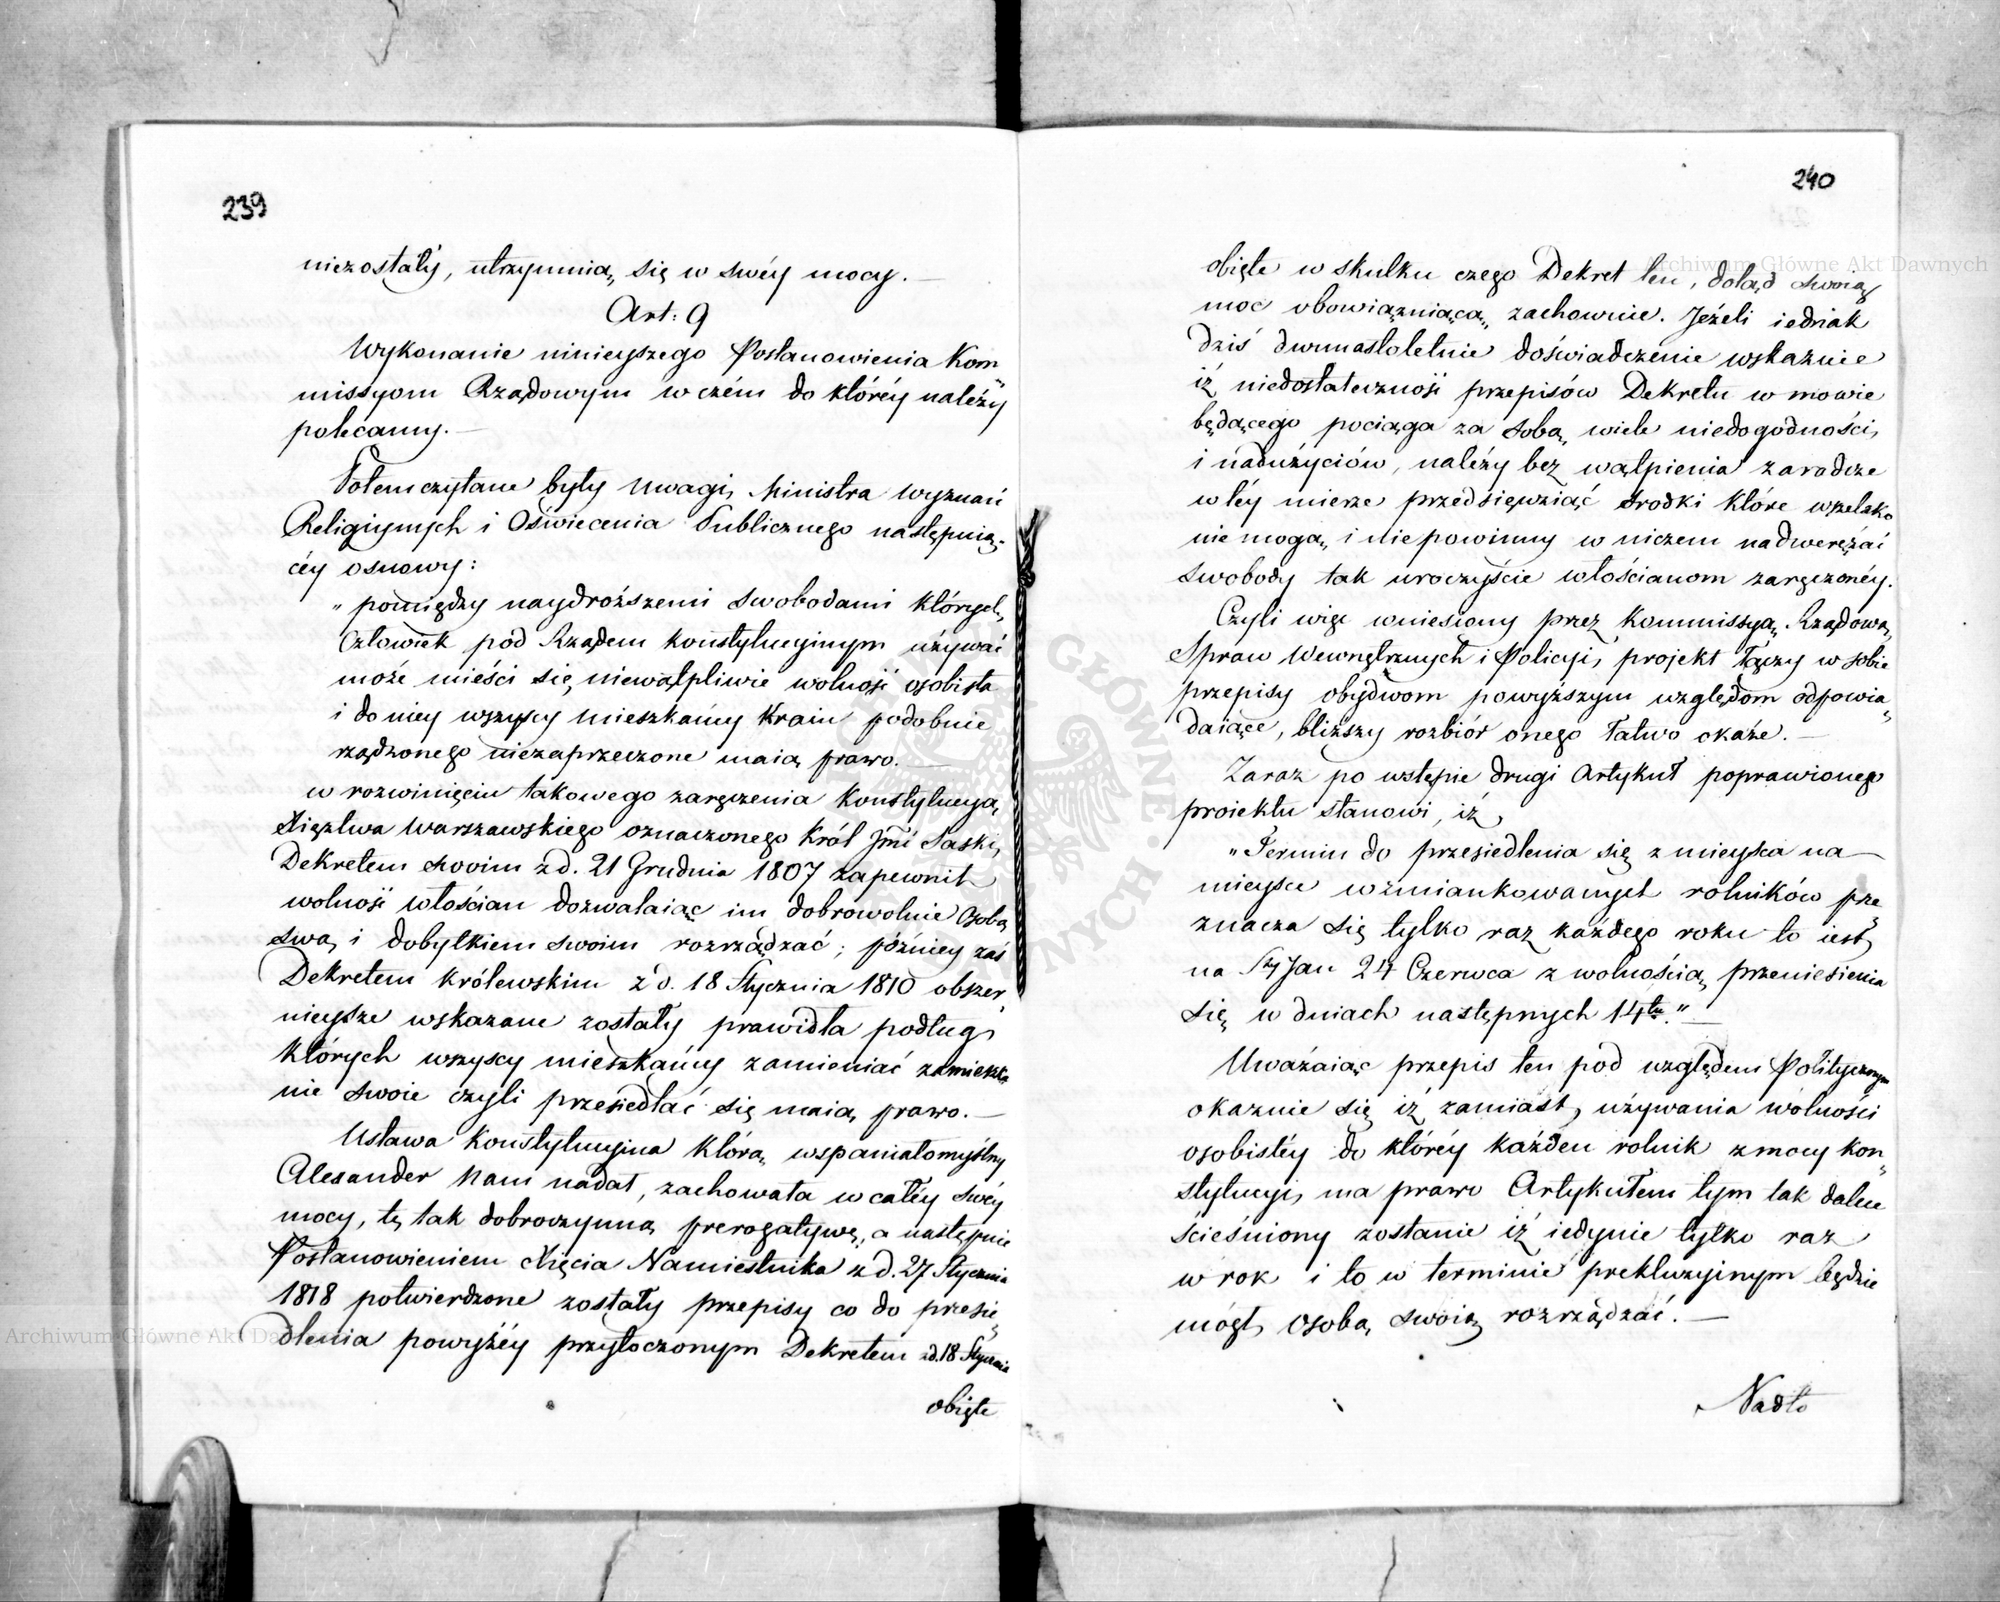 239
niezostały, utrzymuią się w swéy mocy. —
Art: 9
Wykonanie ninieyszego Postanowienia Kom„
missyom Rządowym w czém do któréy należy
polecamy. —
Potem czytane były uwagi Ministra Wyznań
Religiynych i Oświecenia Publicznego następuią„
céy osnowy:
„pomiędzy naydroższemi swobodami których
Człowiek pod Rządem konstytucyinym używać
może mieści się niewątpliwie wolność osobista
i do niey wszyscy mieszkańcy Kraiu podobnie
rządzonego niezaprzeczone maią prawo. —
w rozwinięciu takowego zaręczenia konstytucyą
Xięztwa Warszawskiego oznaczonego Król Jmć Saski,
Dekretem swoim z d. 21 Grudnia 1807 zapewnił
wolność włościan dozwalaiąc im dobrowolnie osobą
swą i dobytkiem swoim rozrządzać; późniey zaś
Dekretem królewskim z d. 18 Stycznia 1810 obszer
nieysze wskazane zostały prawidła podług
których wszyscy mieszkańcy zamieniać zamieszka
nie swoie czyli przesiedlać się maią prawo. —
Ustawa Konstytucyina którą wspaniałomyślny
Alexander Nam nadał, zachowała w całéy swéy
mocy, tę tak dobroczynną prerogatywę, a następnie
Postanowieniem Xięcia Namiestnika z d. 27 Stycznia
1818 potwierdzone zostały przepisy co do przesie„
dlenia powyżéy przytoczonym Dekretem z d. 18 Stycznia
obięte
240
obięte w skutku czego Dekret ten, dotąd swoią
moc obowiązuiącą zachowuie. Jeżeli iednak
dziś dwunastoletnie doświadczenie wskazuie
iż niedostateczność przepisów Dekretu w mowie
będącego pociąga za sobą wiele niedogodności,
i nadużyciów, należy bez wątpienia zaradcze
w téy mierze przedsięwziąć srodki które wszelako
nie mogą i nie powinny w niczem nadwerężać
swobody tak uroczyście włościanom zaręczonéy.
Czyli więc wniesiony przez Kommissyą Rządową
Spraw Wewnętrznych i Policyi, projekt łączy w sobie
przepisy obydwom powyższym względom odpowia„
daiące, bliższy rozbiór onego łatwo okaże. —
Zaraz po wstępie drugi Artykuł poprawionego
proiektu stanowi, iż
„Termin do przesiedlenia się z mieysca na
mieysce wzmiankowanych rolników prze„
znacza się tylko raz każdego roku to iest
na Sty Jan 24 Czerwca z wolnością przeniesienia
się w dniach następnych 14tu." —
Uważaiąc przepis ten pod względem Politycznym
okazuie się iż zamiast używania wolności
osobistéy do któréy każden rolnik z mocy kon„
stytucyi ma prawo Artykułem tym tak dalece
ścieśniony zostanie iż iedynie tylko raz
w rok i to w terminie prekluzyinym będzie
mógł osobą swoią rozrządzać. —
Nadto
Archiwum Główne Akt Dawnych
Archiwum Główne Akt Dawnych